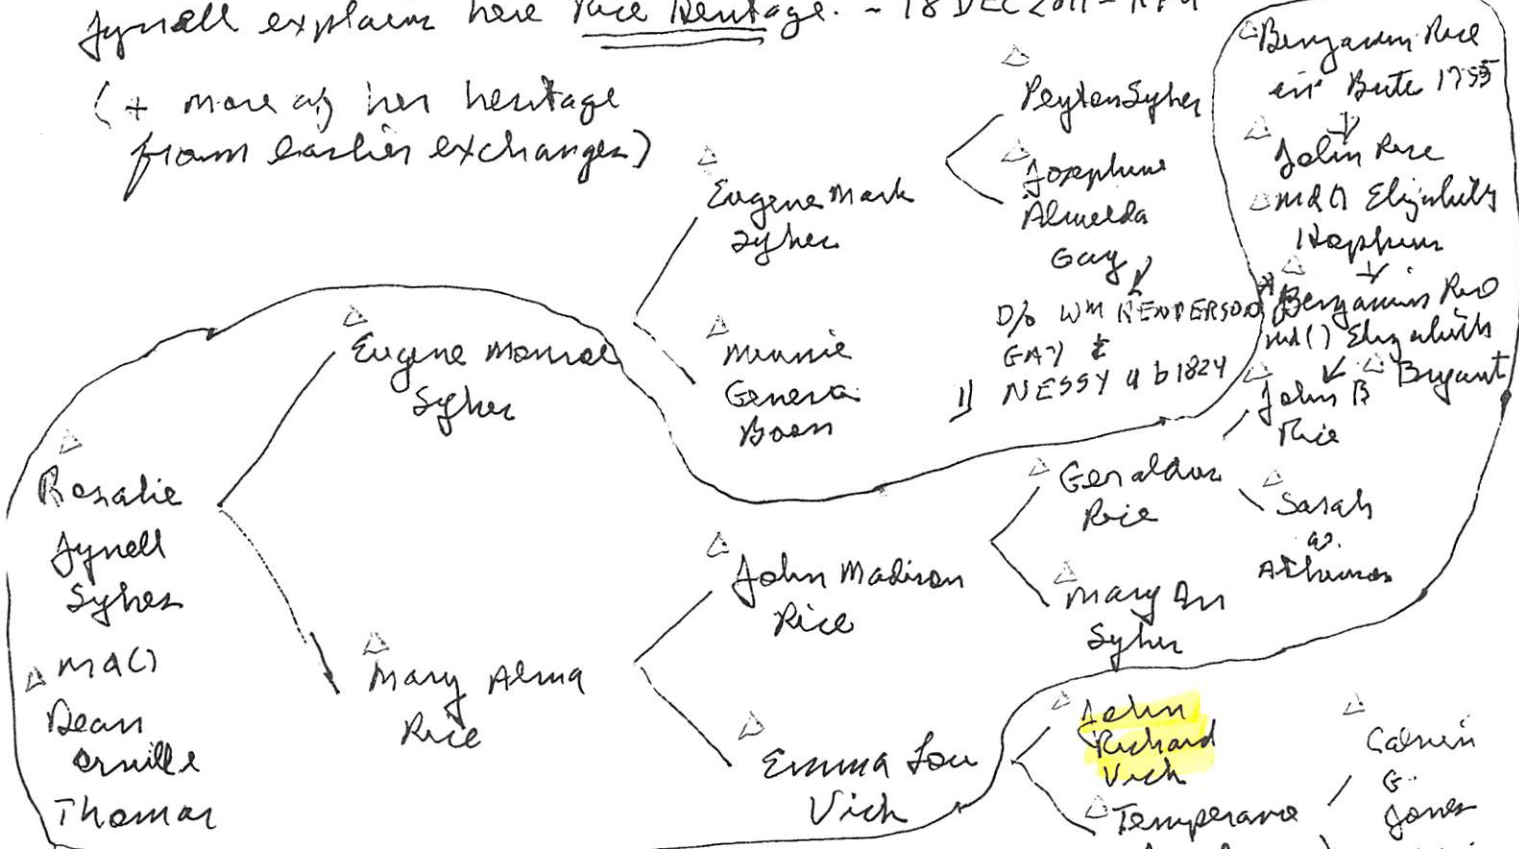 Jynell explains here Rice Heritage. - 18 DEC 2011 -
(+ more of her heritage
from earlier exchanges)
Rosalie
Jynell
Sykes
md()
Dean
Orville
Thomas
Eugene Monroe
Sykes
Mary Alma
Rice
Eugene Mark
Sykes
Minnie
Geneva
Boon
John Madison
Rice
Emma Lou
Vick
Peyton Sykes
Josephine
Almeda
Gay
D/o WM HENDERSON
GAY &
NESSY b 1824
Geraldus
Rice
Mary Ann
Sykes
John
Richard
Vick
Temperance
Benjamin Rice
in Bute 1755
John Rice
md() Elizabeth
Hopkins
Benjamin Rice
md() Elizabeth
Bryant
John B
Rice
Sarah
Calvin
G.
Jones